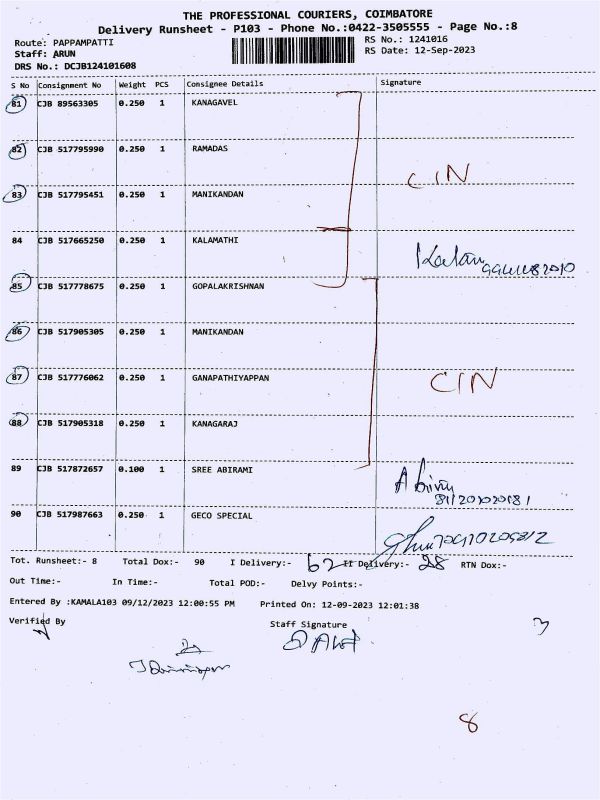 THE PROFESSIONAL COURIERS, COIMBATORE
Delivery Runsheet - P103 - Phone No.:0422-3505555 - Page No.:8
Route: PAPPAMPATTI RS No.: 1241016
Staff: ARUN RS Date: 12-Sep-2023
DRS No.: DCJB124101608
S No Consignment No Weight PCS Consignee Details Signature
81 CJB 89563305 0.250 1 KANAGAVEL
82 CJB 517795990 0.250 1 RAMADAS
CIN
83 CJB 517795451 0.250 1 MANIKANDAN
84 CJB 517665250 0.250 1 KALAMATHI
85 CJB 517778675 0.250 1 GOPALAKRISHNAN
86 CJB 517905305 0.250 1 MANIKANDAN
87 CJB 517776062 0.250 1 GANAPATHIYAPPAN CIN
88 CJB 517905318 0.250 1 KANAGARAJ
89 CJB 517872657 0.100 1 SREE ABIRAMI
90 CJB 517987663 0.250 1 GECO SPECIAL
Tot. Runsheet:- 8 Total Dox:- 90 I Delivery:- 62 II Delivery:- 28 RTN Dox:-
Out Time:- In Time:- Total POD:- Delvy Points:-
Entered By :KAMALA103 09/12/2023 12:00:55 PM Printed On: 12-09-2023 12:01:38
Verified By Staff Signature
3
8